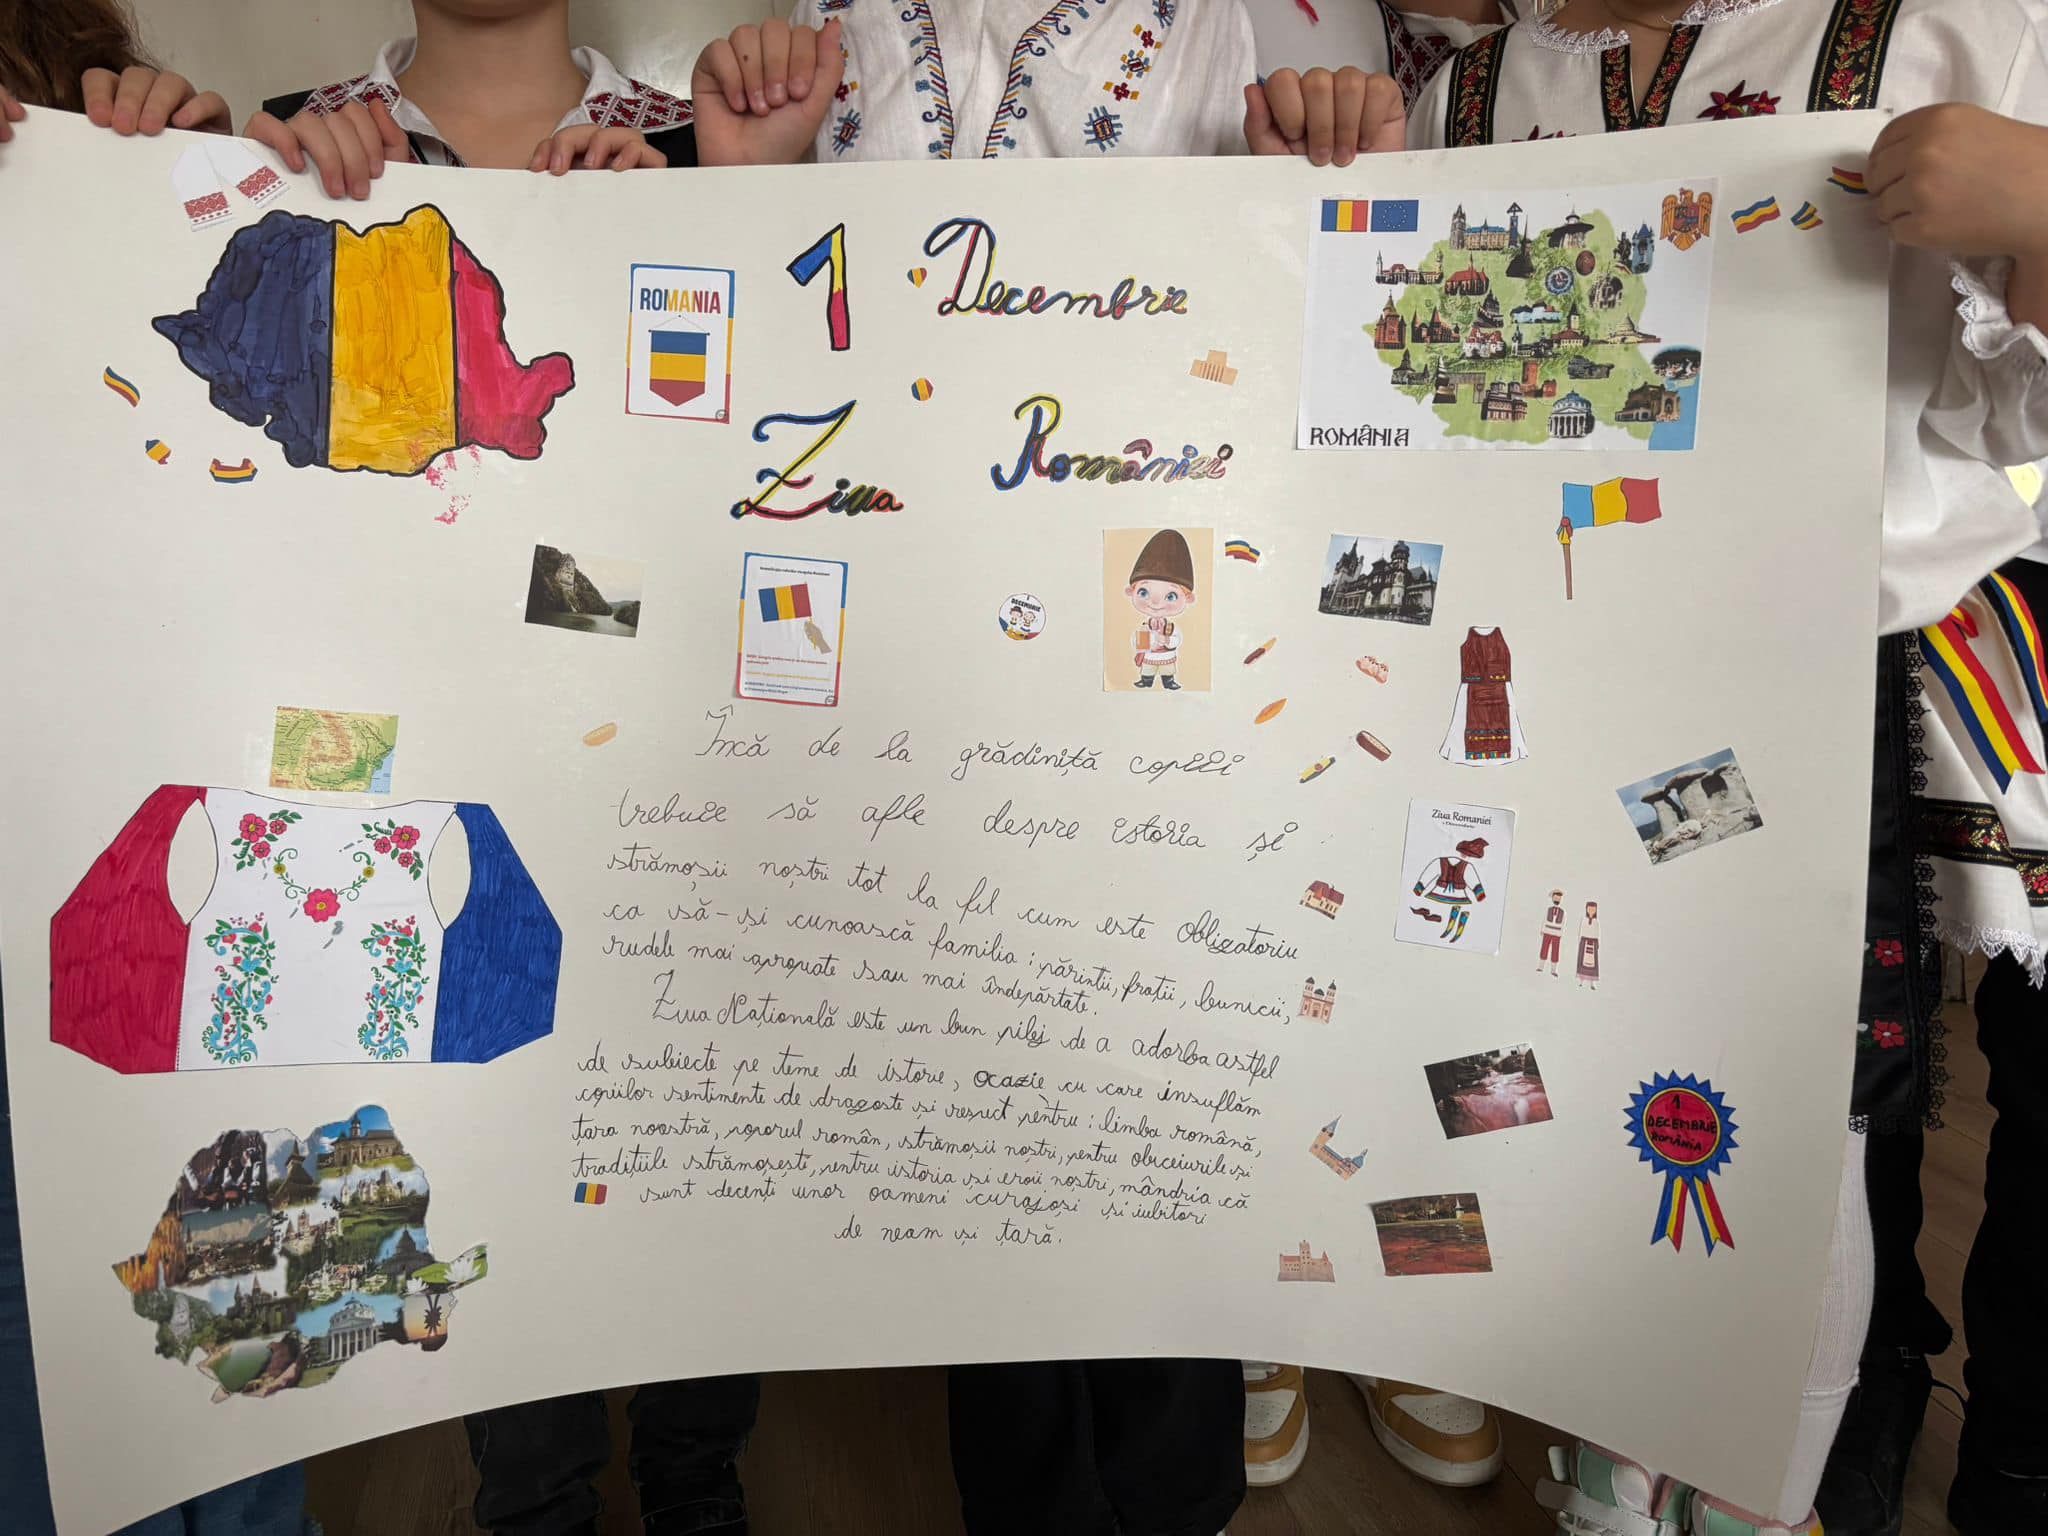 1 Decembrie
Ziua României
ROMANIA
ROMÂNIA
1
DECEMBRIE
Încă de la grădiniță copiii
trebuie să afle despre istoria și
strămoșii noștri tot la fel cum este obligatoriu
ca să-și cunoască familia: părinții, frații, bunicii,
rudele mai apropiate sau mai îndepărtate.
Ziua Națională este un bun pilej de a adorba astfel
de subiecte pe teme de istorie, ocazie cu care insuflăm
copiilor sentimente de dragoste și respect pentru: limba română,
țara noastră, poporul român, strămoșii noștri, pentru obiceiurile și
tradițiile strămoșești, pentru istoria și eroii noștri, mândria că
sunt decenți unor oameni curajoși și iubitori
de neam și țară.
Ziua Romaniei
1 Decembrie
1
DECEMBRIE
ROMÂNIA